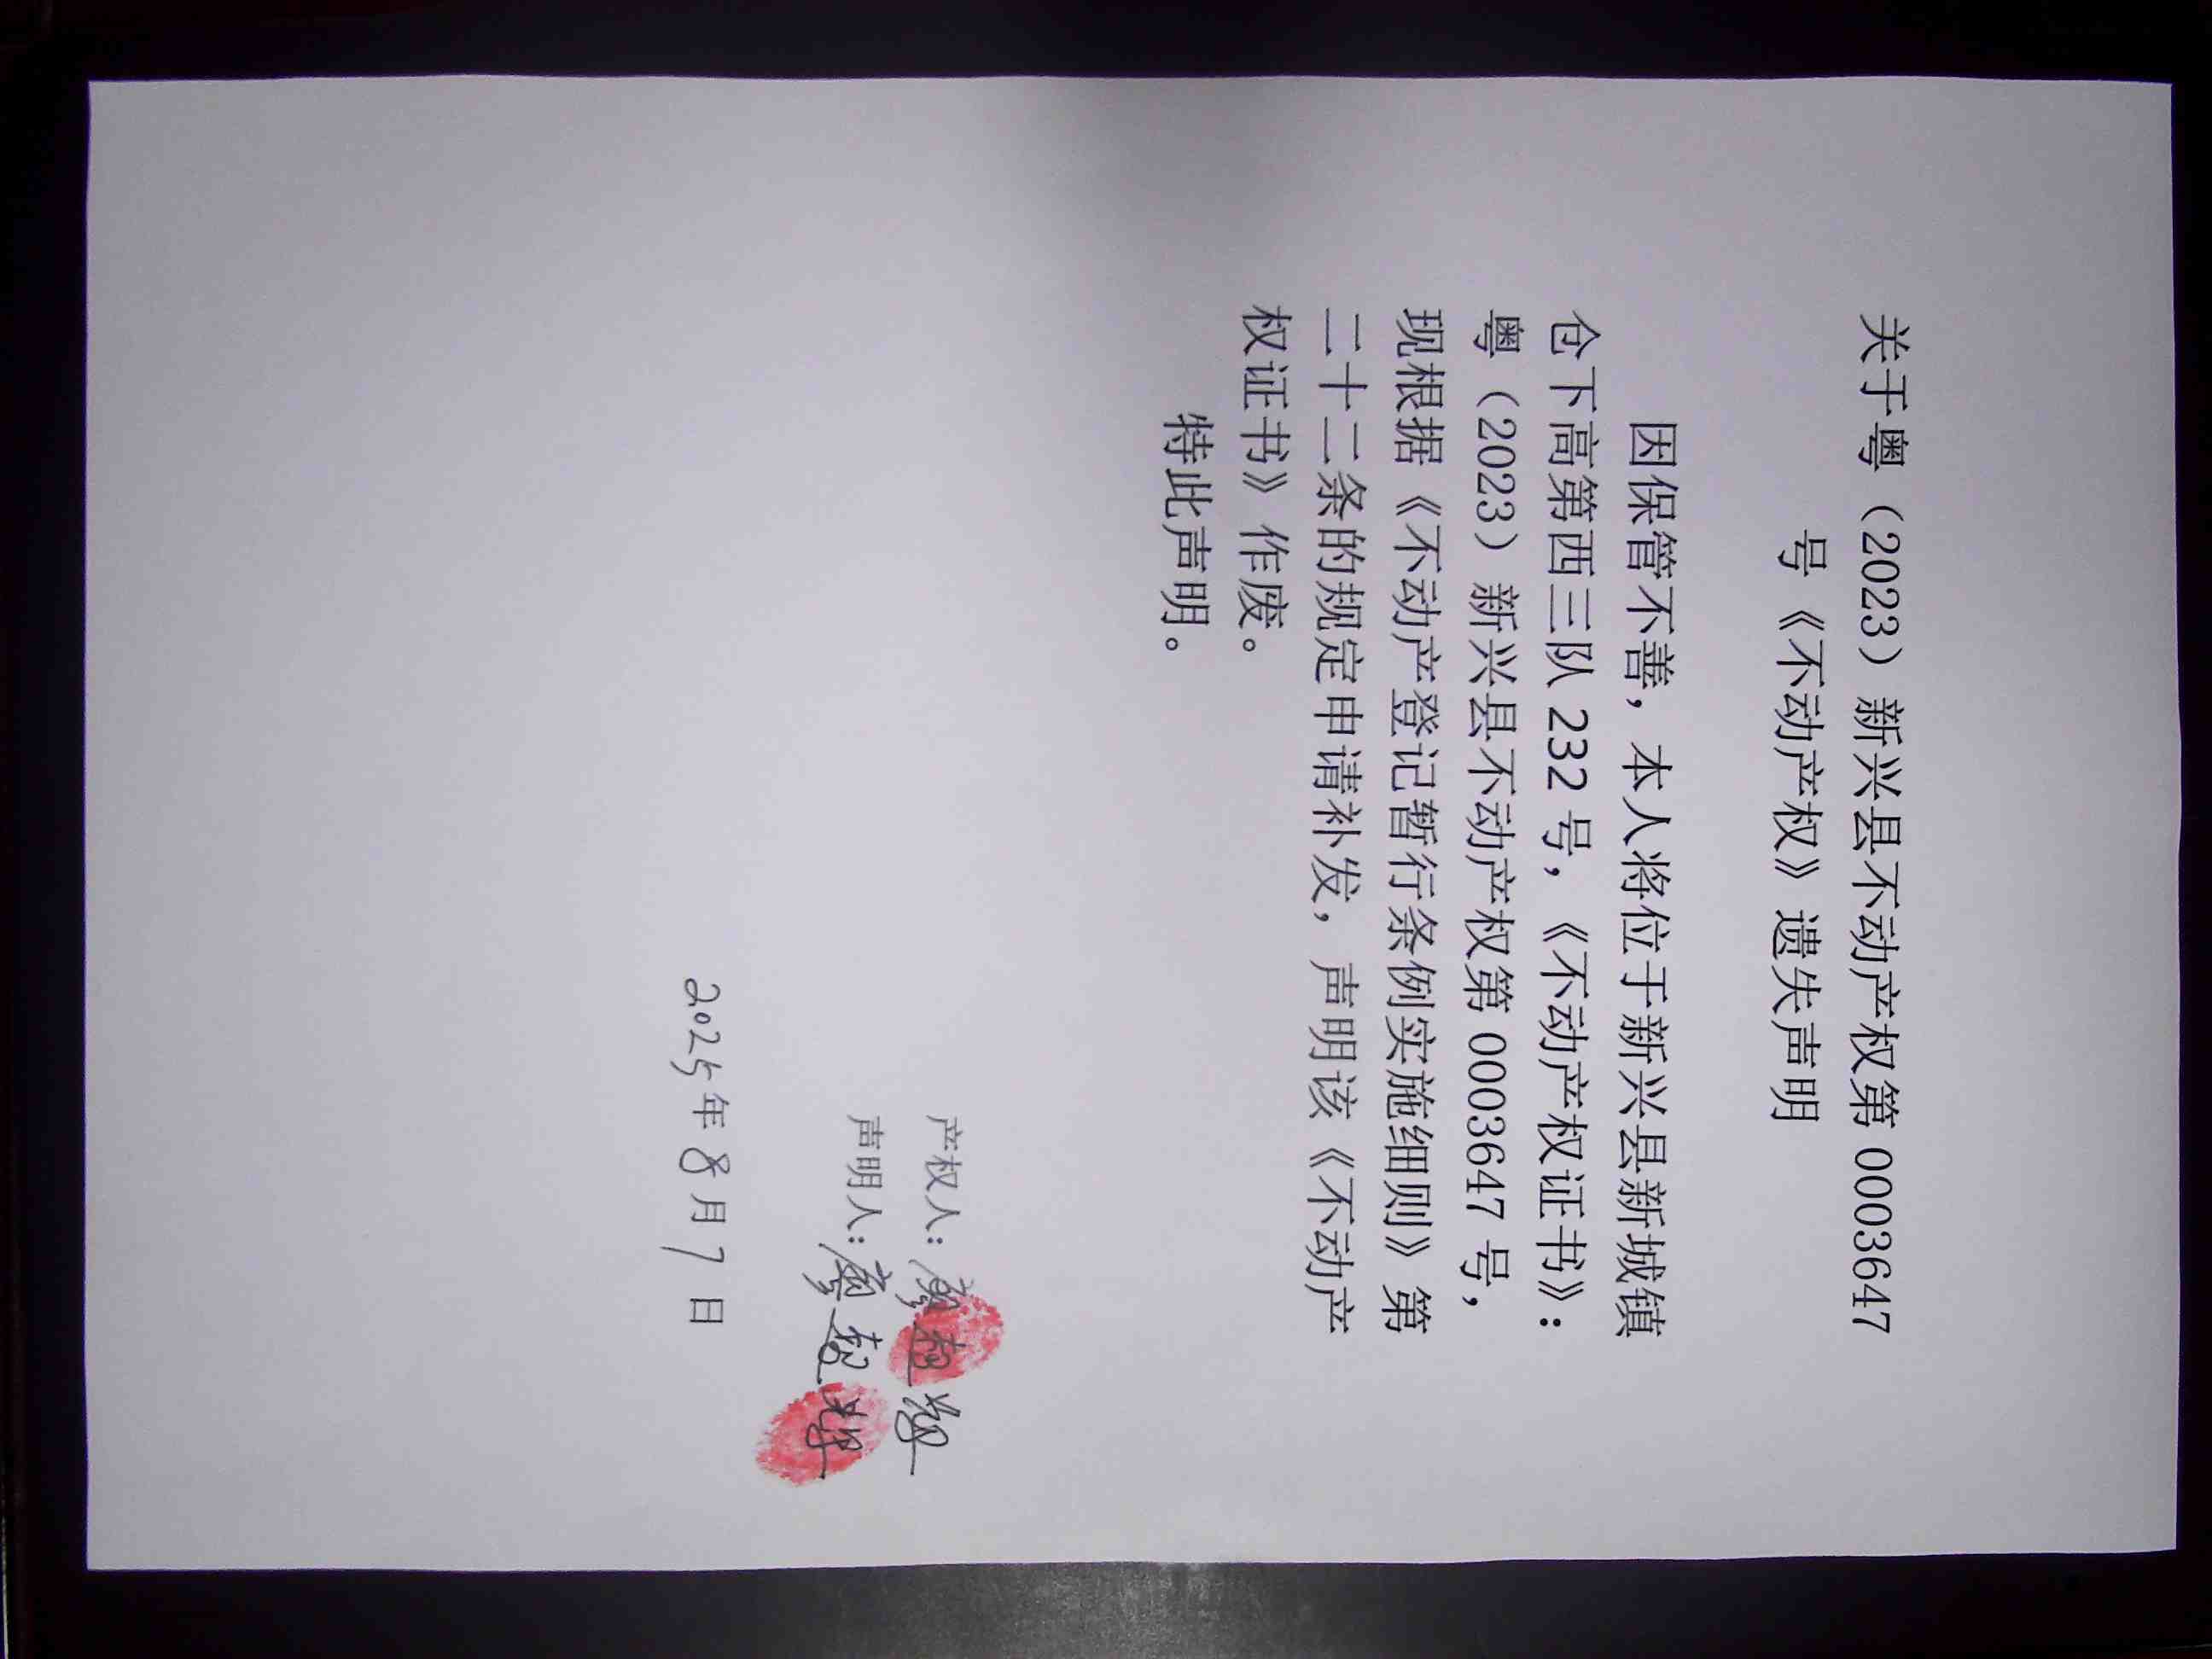 关于粤（2023）新兴县不动产权第 0003647
号《不动产权》遗失声明
因保管不善，本人将位于新兴县新城镇
仓下高第西三队 232 号，《不动产权证书》：
粤（2023）新兴县不动产权第 0003647 号，
现根据《不动产登记暂行条例实施细则》第
二十二条的规定申请补发，声明该《不动产
权证书》作废。
特此声明。
产权人：
声明人：
2025年8月7日